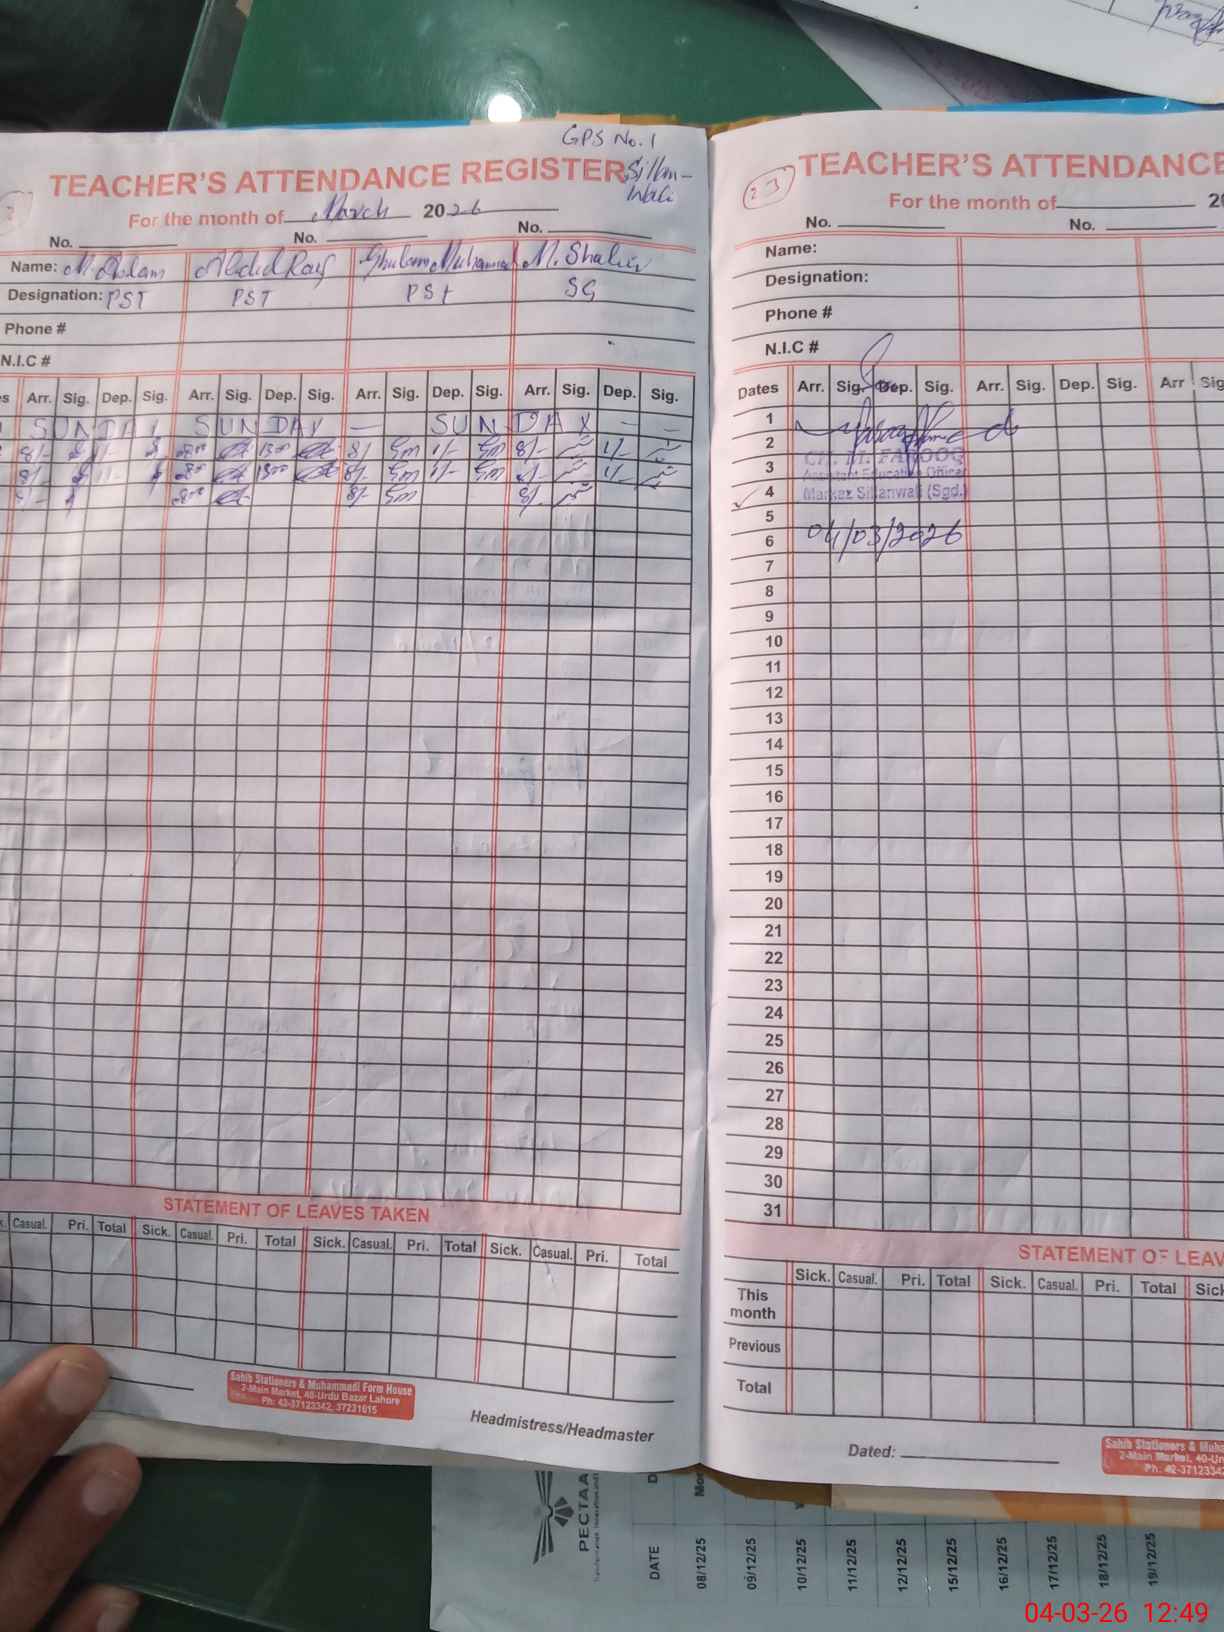 GPS No. 1
TEACHER'S ATTENDANCE REGISTER Sillan-
wali
For the month of March 2026
No. No. No.
Name: M. Aslam Abdul Rauf Ghulam Muhammad M. Shakir
Designation: PST PST PST SG
Phone #
N.I.C #
Arr. Sig. Dep. Sig. Arr. Sig. Dep. Sig. Arr. Sig. Dep. Sig. Arr. Sig. Dep. Sig.
SUNDAY SUNDAY — SUNDAY — —
8/- 1/- 800 1300 8/- Gm 1/- Gm 8/- 1/-
8/- 1/- 800 1300 8/- Gm 1/- Gm 8/- 1/-
8/- 800 8/- Gm 8/-
STATEMENT OF LEAVES TAKEN
Casual. Pri. Total Sick. Casual. Pri. Total Sick. Casual. Pri. Total Sick. Casual. Pri. Total
Sahib Stationers & Muhammadi Form House
2-Main Market, 40-Urdu Bazar Lahore
Ph: 42-37123342, 37231015
Headmistress/Headmaster
23
TEACHER'S ATTENDANCE
For the month of 2
No. No.
Name:
Designation:
Phone #
N.I.C #
Dates Arr. Sig. Dep. Sig. Arr. Sig. Dep. Sig. Arr Sig
1
2
3
4
5
6
7
8
9
10
11
12
13
14
15
16
17
18
19
20
21
22
23
24
25
26
27
28
29
30
31
CH. M. FAROOQ
Assistant Education Officer
Markaz Sillanwali (Sgd.)
04/03/2026
STATEMENT OF LEAV
Sick. Casual. Pri. Total Sick. Casual. Pri. Total Sick
This
month
Previous
Total
Dated:
Sahib Stationers & Muha
2-Main Market, 40-Ur
Ph: 42-3712334
PECTAA
DATE
08/12/25
09/12/25
10/12/25
11/12/25
12/12/25
15/12/25
16/12/25
17/12/25
18/12/25
19/12/25
04-03-26 12:49